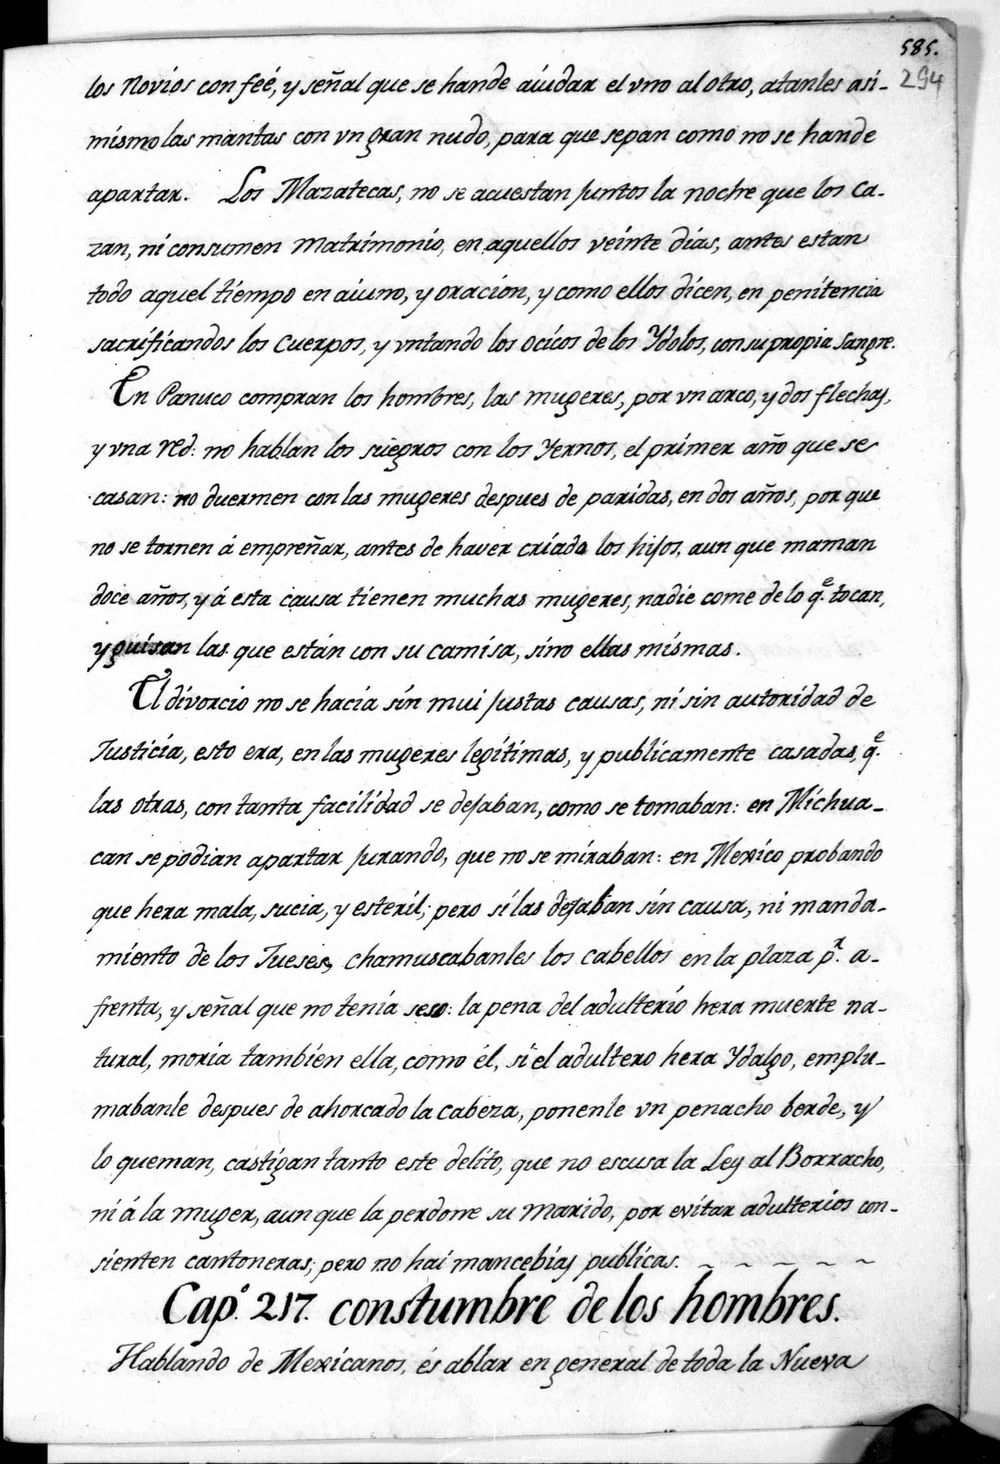 585.
294
los Novios con feé, y señal que se hande aiudar el vno al otro, atanles asi-
mismo las mantas con vn gran nudo, para que sepan como no se hande
apartar. Los Mazatecas, no se acuestan juntos la noche que los ca-
zan, ni consumen Matrimonio, en aquellos veinte dias, antes estan
todo aquel tiempo en aiuno, y oracion, y como ellos dicen, en penitencia
sacrificandos los Cuerpos, y vntando los ocicos de los Ydolos, con su propia Sangre.
En Panuco compran los hombres, las mugeres, por vn arco, y dos flechas,
y vna red: no hablan los suegros con los Yernos, el primer año que se
casan: no duermen con las mugeres despues de paridas, en dos años, por que
no se tornen á empreñar, antes de haver criado los hijos, aun que maman
doce años, y á esta causa tienen muchas mugeres, nadie come de lo q.e tocan,
y guisan las que están con su camisa, sino ellas mismas.
El divorcio no se hacia sin mui justas causas, ni sin autoridad de
Justicia, esto era, en las mugeres legitimas, y publicamente casadas, q.e
las otras, con tanta facilidad se dejaban, como se tomaban: en Michua-
can se podian apartar jurando, que no se miraban: en Mexico probando
que hera mala, sucia, y esteril; pero si las dejaban sin causa, ni manda-
miento de los Jueses, chamuscabanles los cabellos en la plaza p.r a-
frenta, y señal que no tenia seso: la pena del adulterio hera muerte na-
tural, moria tambien ella, como él, si el adultero hera Ydalgo, emplu-
mabanle despues de ahorcado la cabeza, ponenle vn penacho berde, y
lo queman, castigan tanto este delito, que no escusa la Ley al Borracho,
ni á la muger, aun que la perdone su marido, por evitar adulterios con-
sienten cantoneras; pero no hai mancebias publicas. ~ ~ ~ ~ ~
Cap.o 217. constumbre de los hombres.
Hablando de Mexicanos, és ablar en general de toda la Nueva